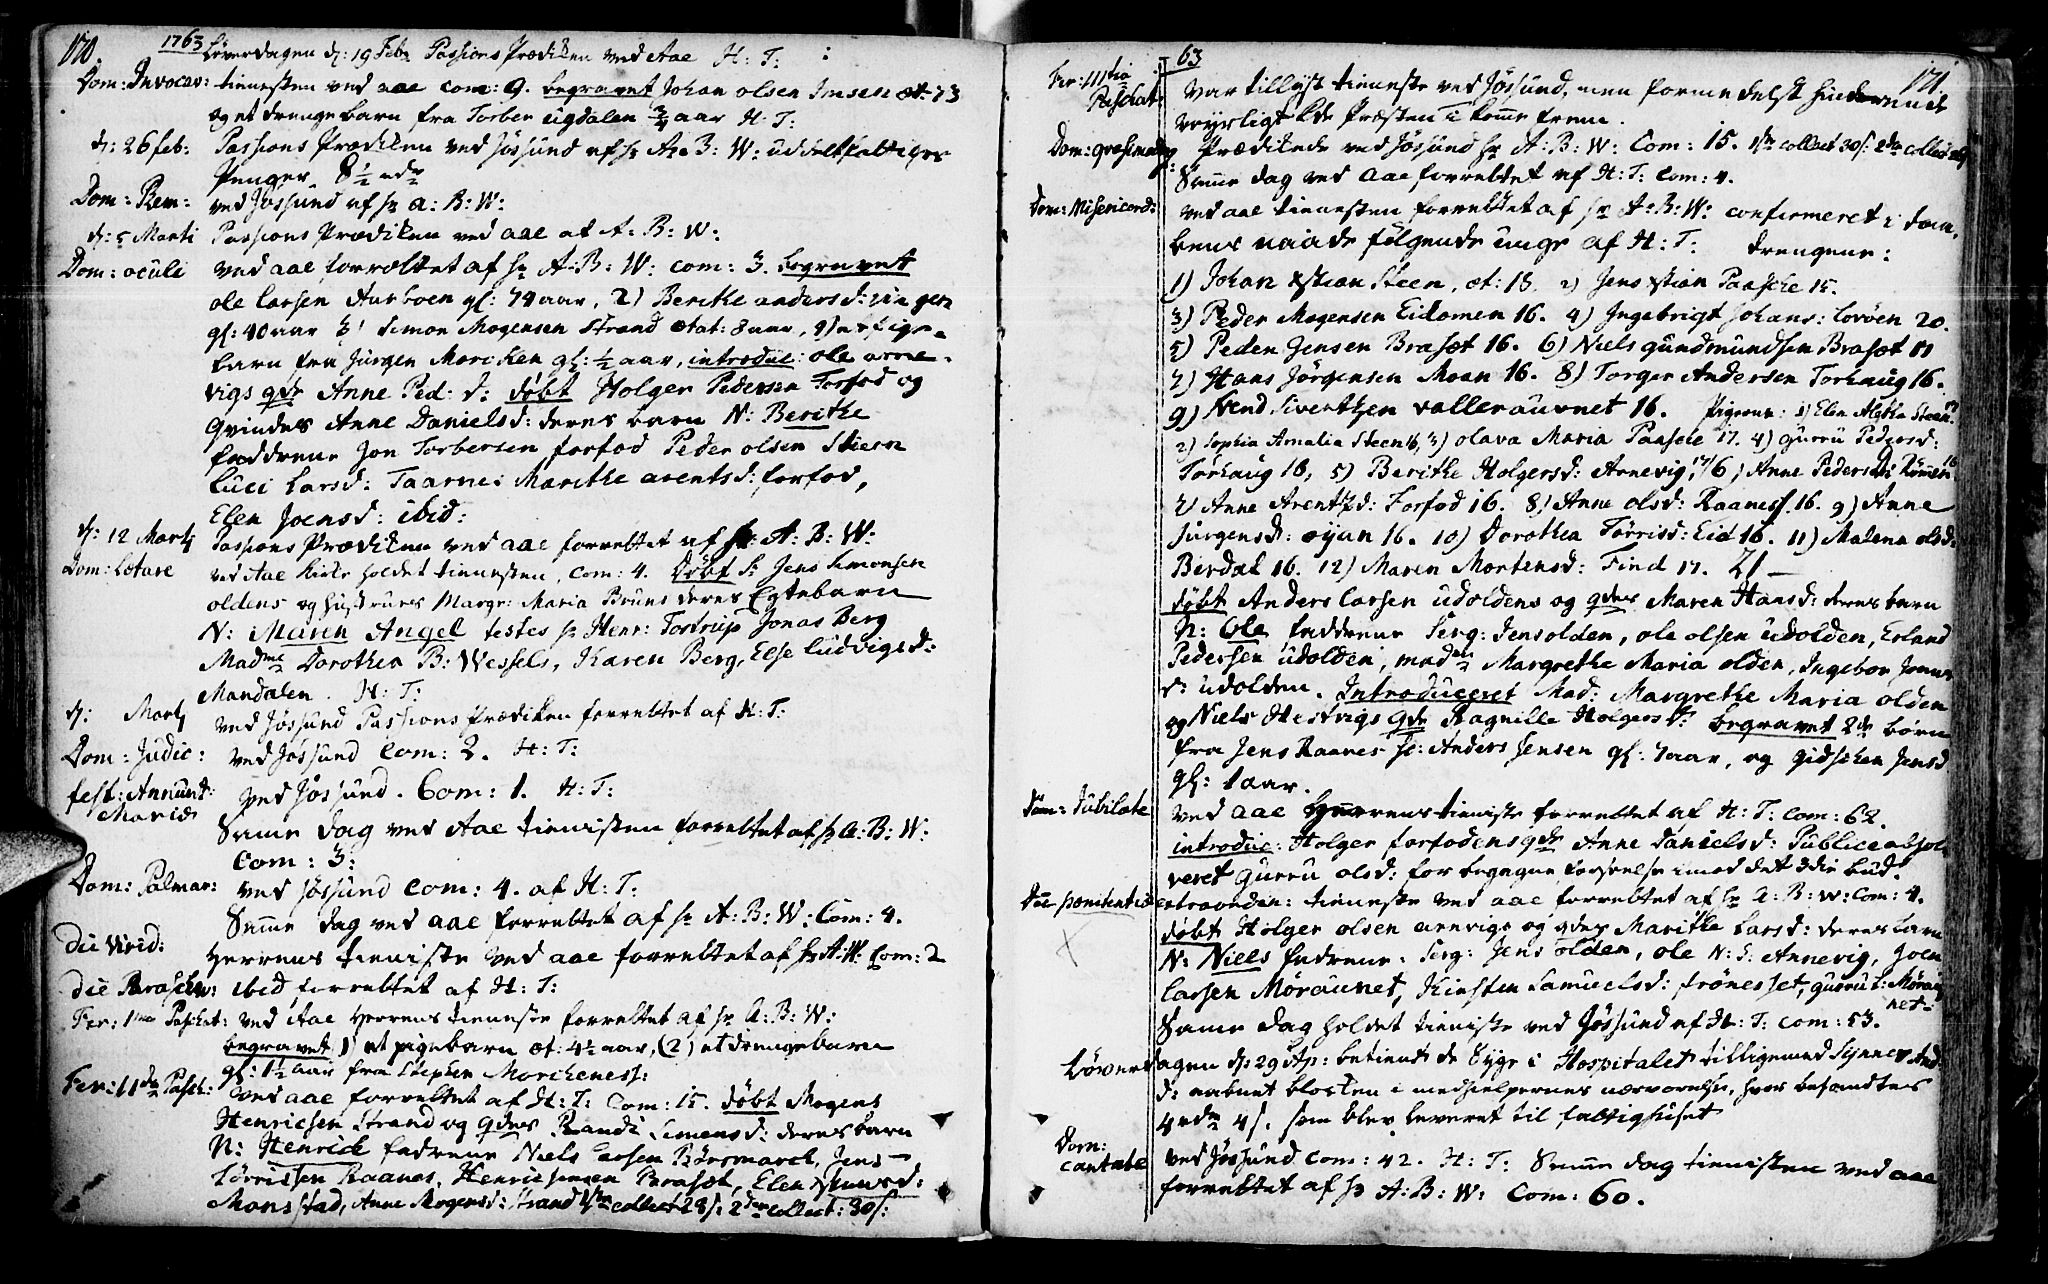 170.
1763 Løverdagen d: 19 Febr Passions Prædiken ved Aae H: T:
Dom: Invocav: tienesten ved aae com: 9. begravet Johan olsen Imsen æt: 73
og et drengebarn fra Torber ugdalen 3/4 aar H: T:
d: 26 feb: Passions Prædiken ved Jøssund af hr A: B: W: uddelt fattiges
Penger 8 1/2 
Dom: Rem: ved Jøssund af hr a: B: W:
d: 5 Marti Passions Prædiken ved aae af A: B: W:
Dom: oculi ved aae forrættet af hr A: B: W: com: 3. begravet
ole larsen Aurboen gl: 74 aar, 2) Berithe anders d:
gl: 40 aar 3) Simon Mogensen Strand ætat: 8 aar, 4) et pige-
barn fra Jürgen Morchen gl: 1/2 aar, introduc: ole arne-
vigs qde Anne Ped: d: døbt Holger Pedersen Forfod og
Qvindes Anne Daniels d: deres barn N: Berithe
fadderne Jon Torbersen forfod Peder olsen Skiern
Luci Lars d: Taarnes Marithe arents d: forfod,
Elen Joens d: ibid:
d: 12 Martj Passions Prædiken ved aae forrettet af hr: A: B: W:
Dom: Lætare ved Aae Kirke holdet tienesten, com: 4. Døbt Sr Jens Simonsen
oldens og hustrues Margr: Maria Bruns deres Egtebarn
N: Maren Angel testes hr Henr: Tostrup Jonas Berg
Madme Dorothea B: Wessels, Karen Berg, Else ludvigs d:
Mandalen. H: T:
d: Martj ved Jøssund Passions Prædiken forrettet af H: T:
Dom: Judic: ved Jøssund Com: 2. H: T:
fest: Annunc: ved Jøssund. Com: 1. H: T:
Mariæ
Samme dag ved Aae tienisten forrettet af hr A: B: W:
Com: 3:
Dom: Palmar: ved Jøssund com: 4. af H: T:
Samme dag ved aae forrettet af hr A: B: W: Com: 4.
Die Virid: Herrens tieniste ved aae forrettet af hr A: W: Com: 2
die Parasche: ibid forrettet af H: T:
Fer: 1ma Paschat: ved Aae Herrens tieneste forrettet af hr A: B: W:
begravet 1) et pigebarn æt: 4 1/2 aar, (2) et drengebarn
gl: 1 1/2 aar fra Stephen Morchenes:
Fer: 11da Pasch: ved aae forrettet af H: T: Com: 15. døbt Mogens
Henricsen Strand og Qdes Randi Simens d: deres barn
N: Henrick fadrene Niels larsen Børsmarck, Jens
Tørrissen Raanes, Henric Brasæt, Elen d:
Monsstad, Anne Mogens d: Strand 1ste collect 28 s: 2den collect: 30 s:
63
171.
Fer: IIItia var tillyst tieneste ved Jøssund, men formedelst hindrende
Paschat: veyrligt kde Præsten i komme frem.
Dom: qvasimodog: Prædikede ved Jøssund hr A: B: W: Com: 15. 1ste collect 30 s: 2de collect
Samme dag ved aae forrettet af H: T: Com: 4.
Dom: Misericord: ved aae tienesten forrettet af hr A: B: W: confirmeret i daa-
bens naade følgende unge af H: T: Drengene:
1) Johan Xstian Steen, æt: 18. 2) Jens Xtian Paasche 15.
3) Peder Mogensen Eidomen 16. 4) Ingebrigt Johans: Lovøen 20.
5) Peder Jensen Brasæt 16. 6) Niels Gundmundsen Brasæt 17
7) Hans Jørgensen Moan 16. 8) Torger Andersen Torhaug 16.
9) Arend Sivertsen vallerauvnet 16. Pigerne: 1) Elen Aletha Steen 17.
2) Sophia Amalia Steen 16, 3) olava Maria Paasche 17. 4) Gurru Peders d:
Torhaug 16, 5) Berithe Holgers d: Arnevig, 17, 6) Anne Peders d: 16
7) Anne Arents d: Forfod 16. 8) Anne ols d: Raanes 16. 9) Anne
Jürgens d: øyan 16. 10) Dorothea Tørris d: Eid 16. 11) Malena ols d:
Berdal 16. 12) Maren Mortens d: Find 17. 21 —
døbt Anders larsen udoldens og qdes Maren Hans d: deres barn
N: Ole fadderne Serg: Jens olden, ole olsen udolden, Erland
Pedersen udolden, madme Margrethe Maria olden, Ingebor
d: udolden. Introduceret Mad: Margrethe Maria olden
og Niels Hestvigs qde Ragnille Holgers d: begravet 2de børn
fra Jens Raanes hr: Anders Jensen gl: 4 aar, og Gidsken Jens d
gl: 1 aar.
Dom: Jubilate ved aae Herrens tieniste forrettet af H: T: com: 62.
introduc: Holger forfodens qde Anne Daniels d: Publice absol-
veret Gurru ols d: for begagne forseelse imod det 3die bud.
Die poenitentiæ extraordin: tieneste ved aae forrettet af hr A: B: W: Com: 4.
døbt Holger olsen arnvigs og qdes Marithe Lars d: deres barn
N: Niels fadrene. Serg: Jens olden, ole N: S: Annevig, Joen
larsen Møraunet, Kirsten Samuels d: frønesset, gurru L: Mørau
net-
Same dag holdet tieniste ved Jøssund af H: T: com: 53.
Løverdagen d: 29 Ap: betient de Syge i Hospitalet tilligemed Synnev And
d: aabnet blocken i medhielpernes nærværelse, hvor befandtes
4 4 s. som blev leveret til fattighuset
Dom:
cantate ved Jøssund com: 42. H: T: Same dag tienisten ved aae
forrettet af hr A: B: W: Com: 60.